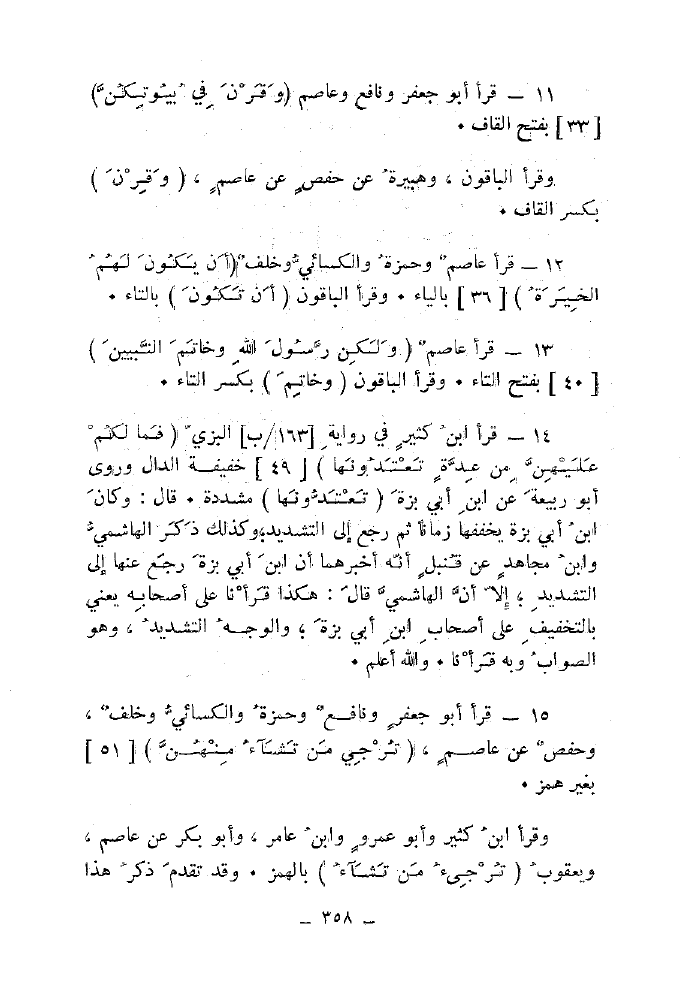 ١١ ــ قرأ أبو جعفر ونافع وعاصم (وَقَرْنَ فِي بُيُوتِكُنَّ)
[ ٣٣ ] بفتح القاف ٠
وقرأ الباقون ، وهبيرةُ عن حفصٍ عن عاصمٍ ، ( وَقِرْنَ )
بكسر القاف ٠
١٢ ــ قرأ عاصمٌ وحمزةُ والكسائيُّ وخلفٌ (أَن يَكُونَ لَهُمُ
الخِيَرَةُ ) [ ٣٦ ] بالياء ٠ وقرأ الباقون ( أَن تَكُونَ ) بالتاء ٠
١٣ ــ قرأ عاصمٌ ( وَلَكِن رَّسُولَ اللهِ وخاتَمَ النَّبِيينَ )
[ ٤٠ ] بفتح التاء ٠ وقرأ الباقون ( وخاتِمَ ) بكسر التاء ٠
١٤ ــ قرأ ابنُ كثيرٍ في روايةِ [١٦٣/ب] البزيّ ( فَما لَكُمْ
عَلَيْهِنَّ مِن عِدَّةٍ تَعْتَدُونَها ) [ ٤٩ ] خفيفة الدال وروى
أبو ربيعةَ عن ابنِ أبي بزةَ ( تَعْتَدُّونَها ) مشددة ٠ قال : وكانَ
ابنُ أبي بزة يخففها زماناً ثم رجع إلى التشديد؛وكذلك ذَكَرَ الهاشميُّ
وابنُ مجاهدٍ عن قُنبلٍ أنّه أخبرهما أن ابنَ أبي بزةَ رجَعَ عنها إلى
التشديدِ ؛ إلاّ أنَّ الهاشميَّ قالَ : هكذا قَرأْنا على أصحابِه يعني
بالتخفيفِ على أصحابِ ابنِ أبي بزةَ ؛ والوجهُ التشديدُ ، وهو
الصوابُ وبه قَرأْنا ٠ والله أعلم ٠
١٥ ــ قرأ أبو جعفرٍ ونافعٌ وحمزةُ والكسائيُّ وخلفٌ ،
وحفصٌ عن عاصمٍ ، ( تُرْجِي مَن تَشَآءُ مِنْهُنَّ ) [ ٥١ ]
بغير همز ٠
وقرأ ابنُ كثير وأبو عمروٍ وابنُ عامر ، وأبو بكر عن عاصم ،
ويعقوبُ ( تُرْجِىءُ مَن تَشَآءُ ) بالهمز ٠ وقد تقدمَ ذكرُ هذا
ــ ٣٥٨ ــ